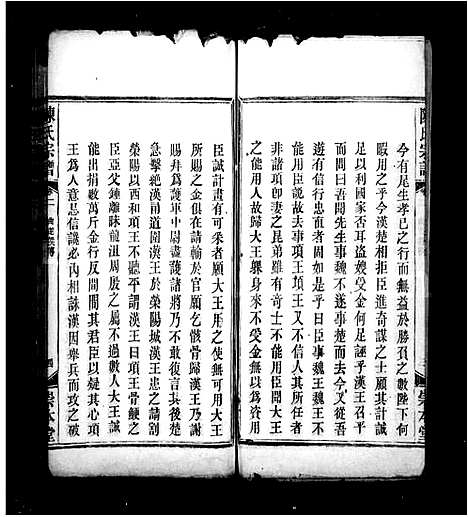 陳氏宗譜
今有尾生孝己之行而無益於勝負之數陛下何
暇用之乎今漢楚相拒臣進奇謀之士顧其計誠
足以利國家否耳盜嫂受金何足疑乎漢王召平
而問曰吾聞先生事魏不遂事楚而去今又從吾
遊有信行者固如是乎曰臣事魏王魏王不
能用臣說故去事項王項王又不能信人其所任者
非諸項卽妻之昆弟雖有奇士不能用臣聞漢王
之能用人故歸大王躶身來不受金無以為資用
崇本堂
臣誠計畫有可采者願大王用之使無可用大王
所賜之金俱在請輸於官願乞骸骨歸漢王乃謝厚
賜拜為護軍中尉盡護諸將諸將乃不敢復言其後楚
急擊絕漢甬道圍漢王於滎陽城漢王患之請割
滎陽以西和項王不聽平謂漢王曰項王骨鯁之
臣亞父鍾離眛龍沮周殷之屬不過數人大王誠
能出捐數萬斤金行反間間其君臣以疑其心項
王為人意忌信讒必內相誅漢因舉兵而攻之破
陳氏宗譜
卷一
四
崇本堂